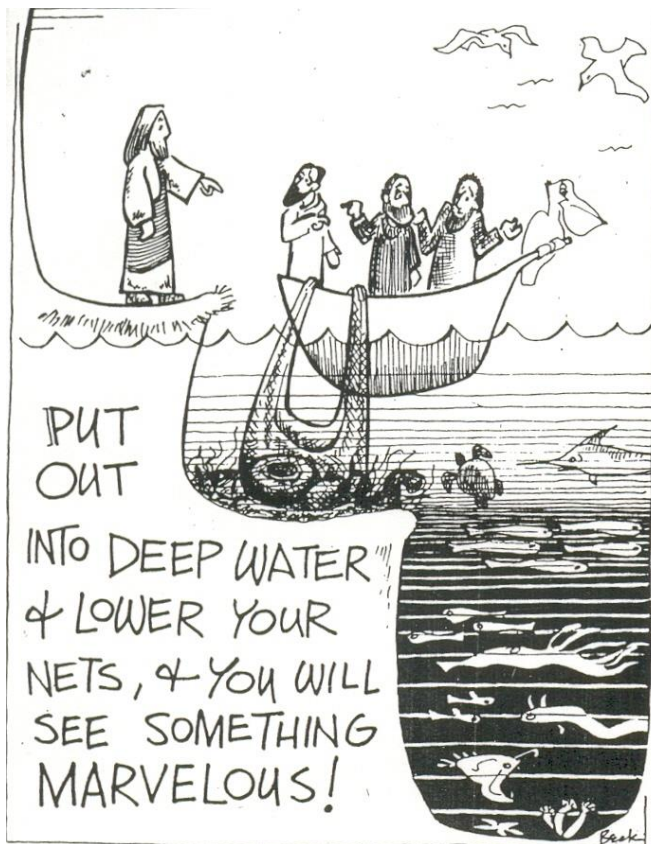 PUT
OUT
INTO DEEP WATER
& LOWER YOUR
NETS, & YOU WILL
SEE SOMETHING
MARVELOUS!